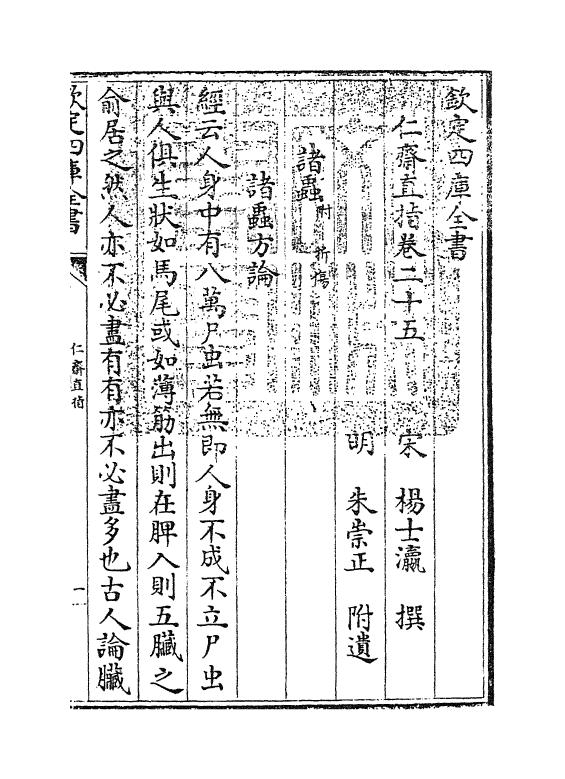 欽定四庫全書
仁齋直指卷二十五
宋 楊士瀛 撰
明 朱崇正 附遺
諸蟲 附 折傷
諸蟲方論
經云人身中有八萬尸虫若無即人身不成不立尸虫
與人俱生狀如馬尾或如薄筋出則在脾入則五臟之
俞居之然人亦不必盡有有亦不必盡多也古人論臟
欽定四庫全書
仁齋直指
一